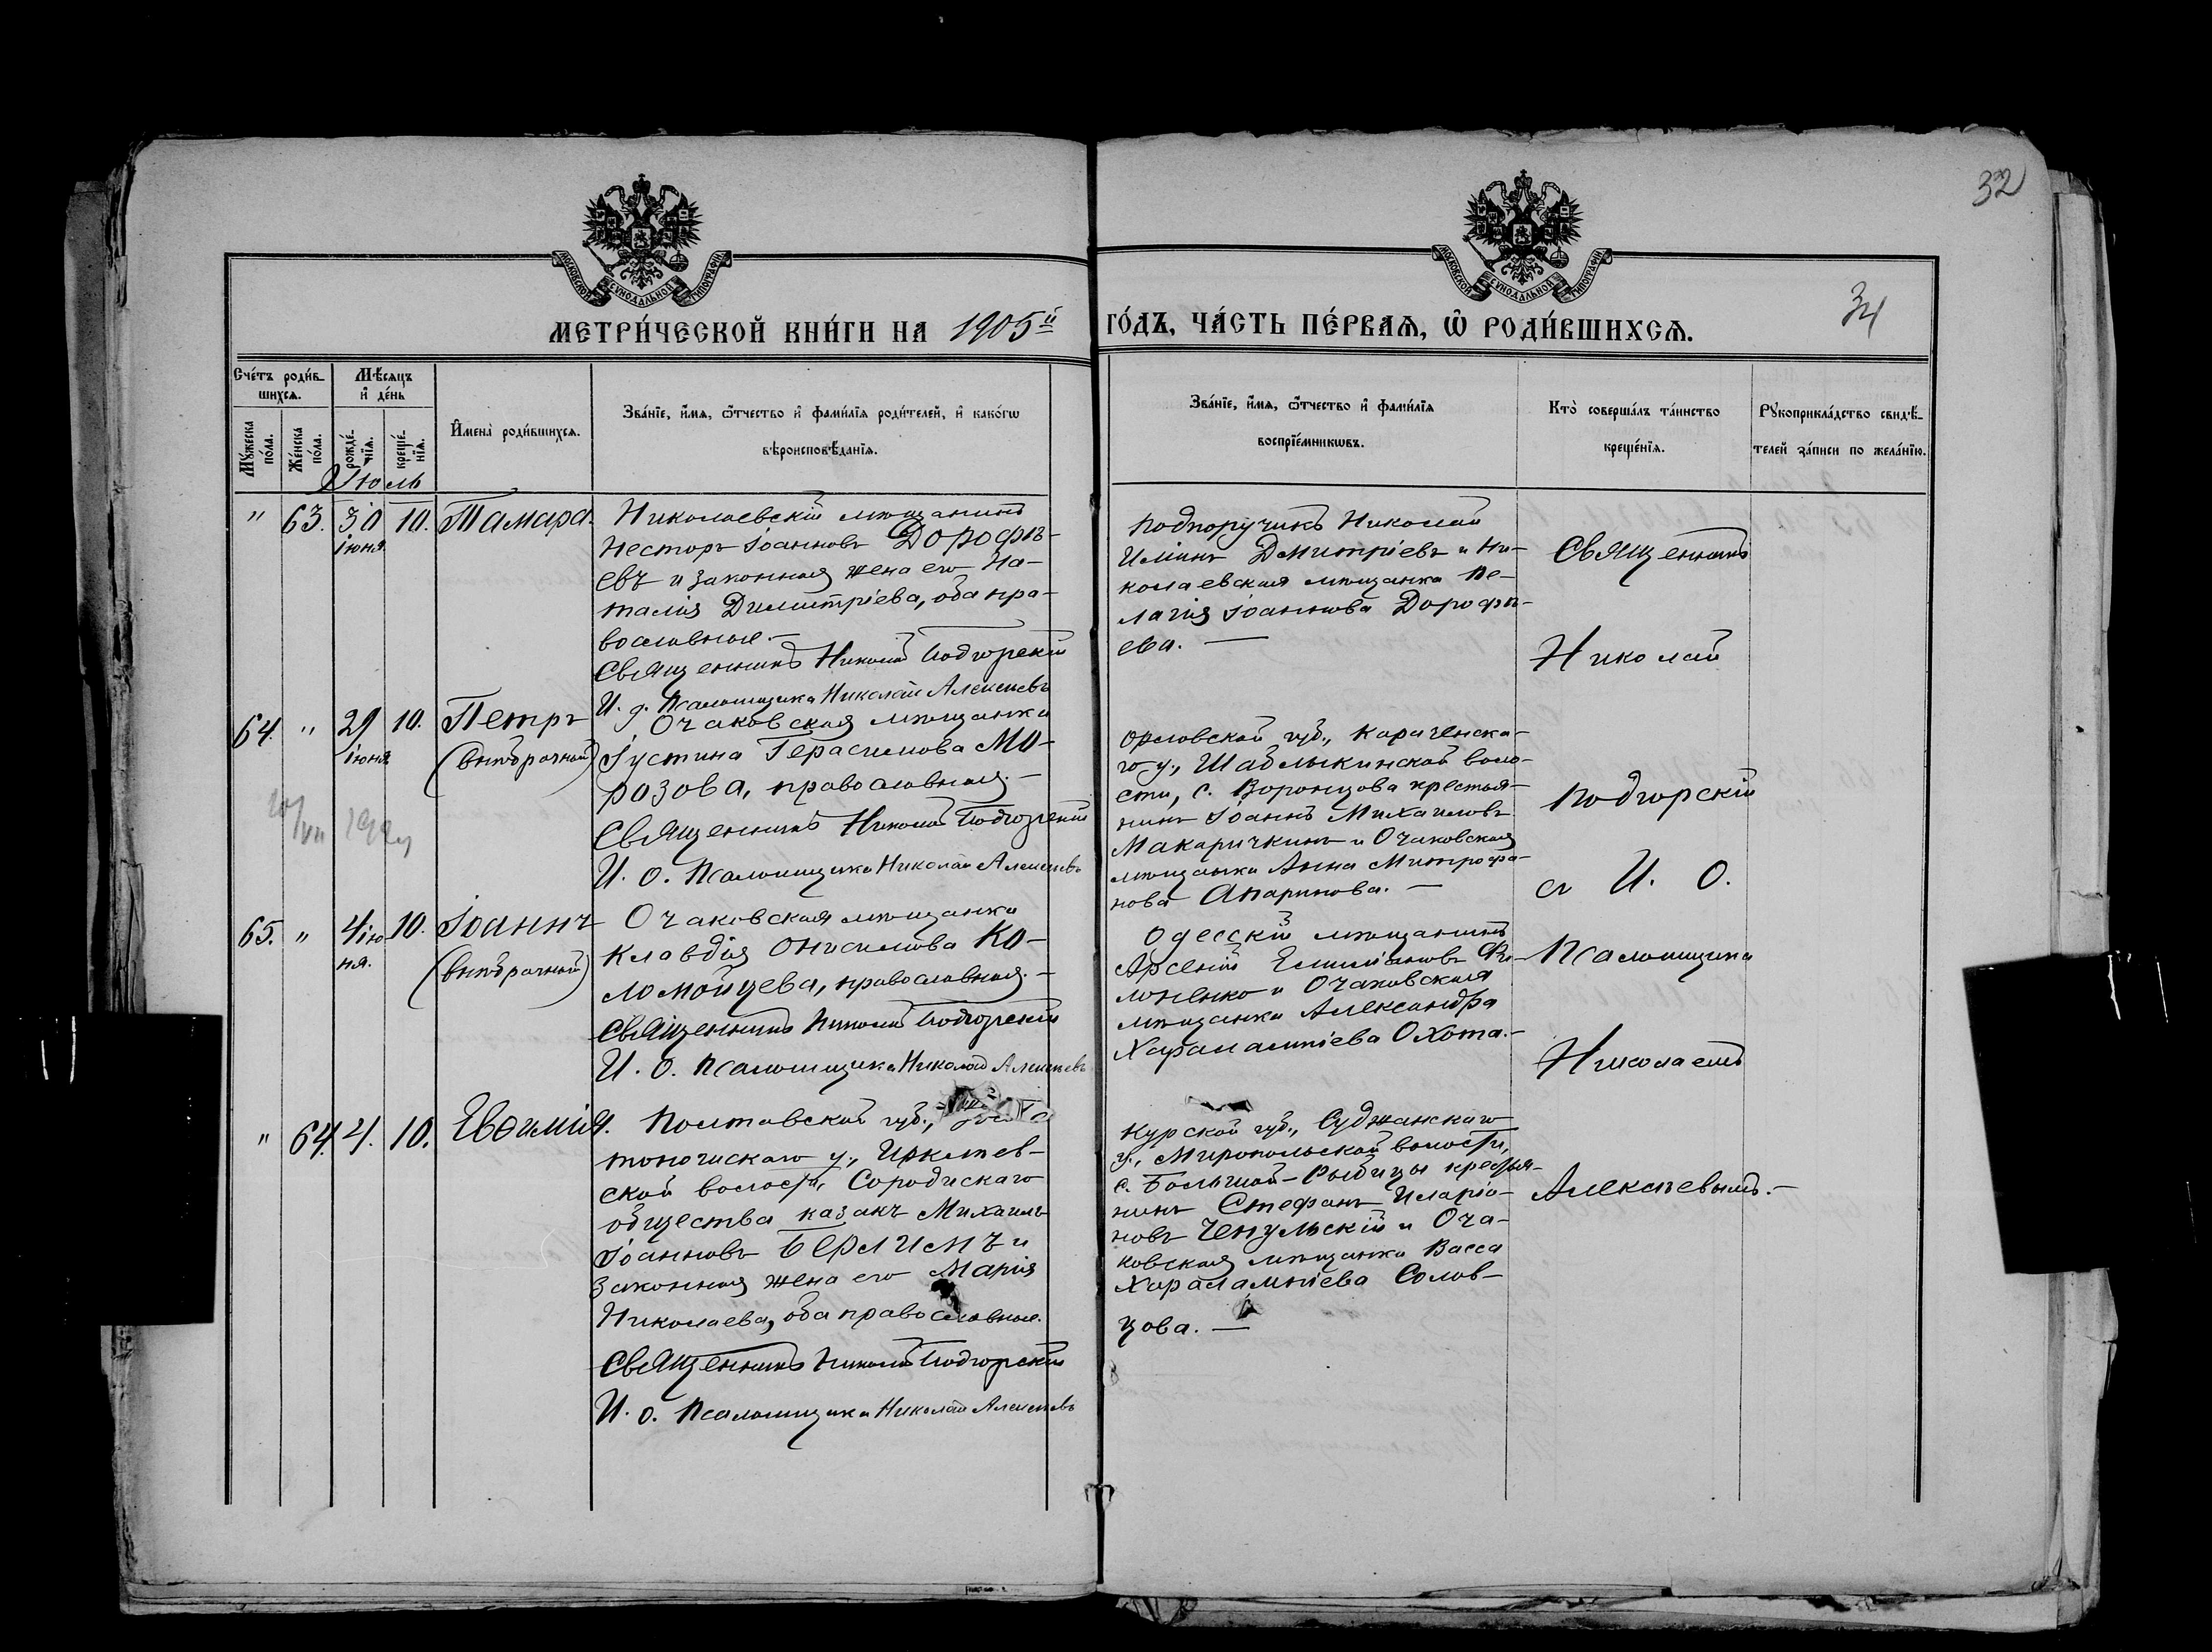 32
34
МОСКОВСКОЙ СУНОДАЛЬНОЙ ТИПОГРАФІИ
МОСКОВСКОЙ СУНОДАЛЬНОЙ ТИПОГРАФІИ
МЕТРИ́ЧЕСКОЙ КНИ́ГИ НА 1905й ГО́ДЪ, ЧА́СТЬ ПЕ́РВАѦ, Ѡ҃ РОДИ́ВШИХСѦ.
Сче́тъ роди́в-
шихсѧ.
Мѣ́сѧцъ
и҆ де́нь
Мꙋ́жеска по́ла.
Же́нска по́ла.
рожде́-
нїѧ.
креще́-
нїѧ.
И҆мена̀ роди́вшихсѧ.
Зва́нїе, и҆́мѧ, ѻ҆́тчество и҆ фамилїѧ роди́телей, и҆ како́гѡ
вѣроисповѣ́данїѧ.
Зва́нїе, и҆́мѧ, ѻ҆́тчество и҆ фами́лїѧ
воспрїе́мникѡвъ.
Кто̀ соверша́лъ та́инство
креще́нїѧ.
Рꙋкоприкла́дство свидѣ́-
телей за́писи по жела́нїю.
Іюль
" 63. 30 10. Тамара.
іюня
Николаевскій мѣщанинъ
Несторъ Іоанновъ Дорофѣ-
евъ и законная жена его На-
талія Димитріева, оба пра-
вославные. —
Священникъ Николай Подгорскій
И. д. Псаломщика Николай Алексѣевъ
Подпоручикъ Николай
Иліинъ Дмитріевъ и Ни-
колаевская мѣщанка Пе-
лагія Іоаннова Дорофѣ-
ева. —
64. " 29 10. Петръ
іюня (внѣбрачный)
Очаковская мѣщанка
Іустина Герасимова Мо-
розова, православная. —
Священникъ Николай Подгорскій
И. о. Псаломщика Николай Алексѣевъ
Орловской губ., Карачевска-
го у., Шаблыкинской воло-
сти, с. Воронцова крестья-
нинъ Іоаннъ Михаиловъ
Макаричкинъ и Очаковская
мѣщанка Анна Митрофа-
нова Апаринова. —
65. " 4 ію- 10. Іоаннъ
ня. (внѣбрачный)
Очаковская мѣщанка
Клавдія Онисимова Ко-
ломойцева, православная. —
Священникъ Николай Подгорскій
И. о. Псаломщика Николай Алексѣевъ
Одесскій мѣщанинъ
Арсеній Емиліановъ Фи-
лоненко и Очаковская
мѣщанка Александра
Харалампіева Охота. —
" 64. 4. 10. Евѳимія.
Полтавской губ.,
тоношскаго у., Ирклѣев-
ской волости, Городискаго
общества казакъ Михаилъ
Іоанновъ Берлимъ и
законная жена его Марія
Николаева, оба православные.
Священникъ Николай Подгорскій
И. о. Псаломщика Николай Алексѣевъ
Курской губ., Суджанскаго
у., Миропольской волости,
с. Большой-Рыбицы крестья-
нинъ Стефанъ Иларіо-
новъ Чепульскій и Оча-
ковская мѣщанка Васса
Харалампіева Солов-
цова. —
Священникъ
Николай
Подгорскій
съ И. О.
Псаломщика
Николаемъ
Алексѣевымъ. —